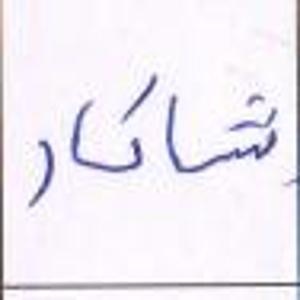 شاكار